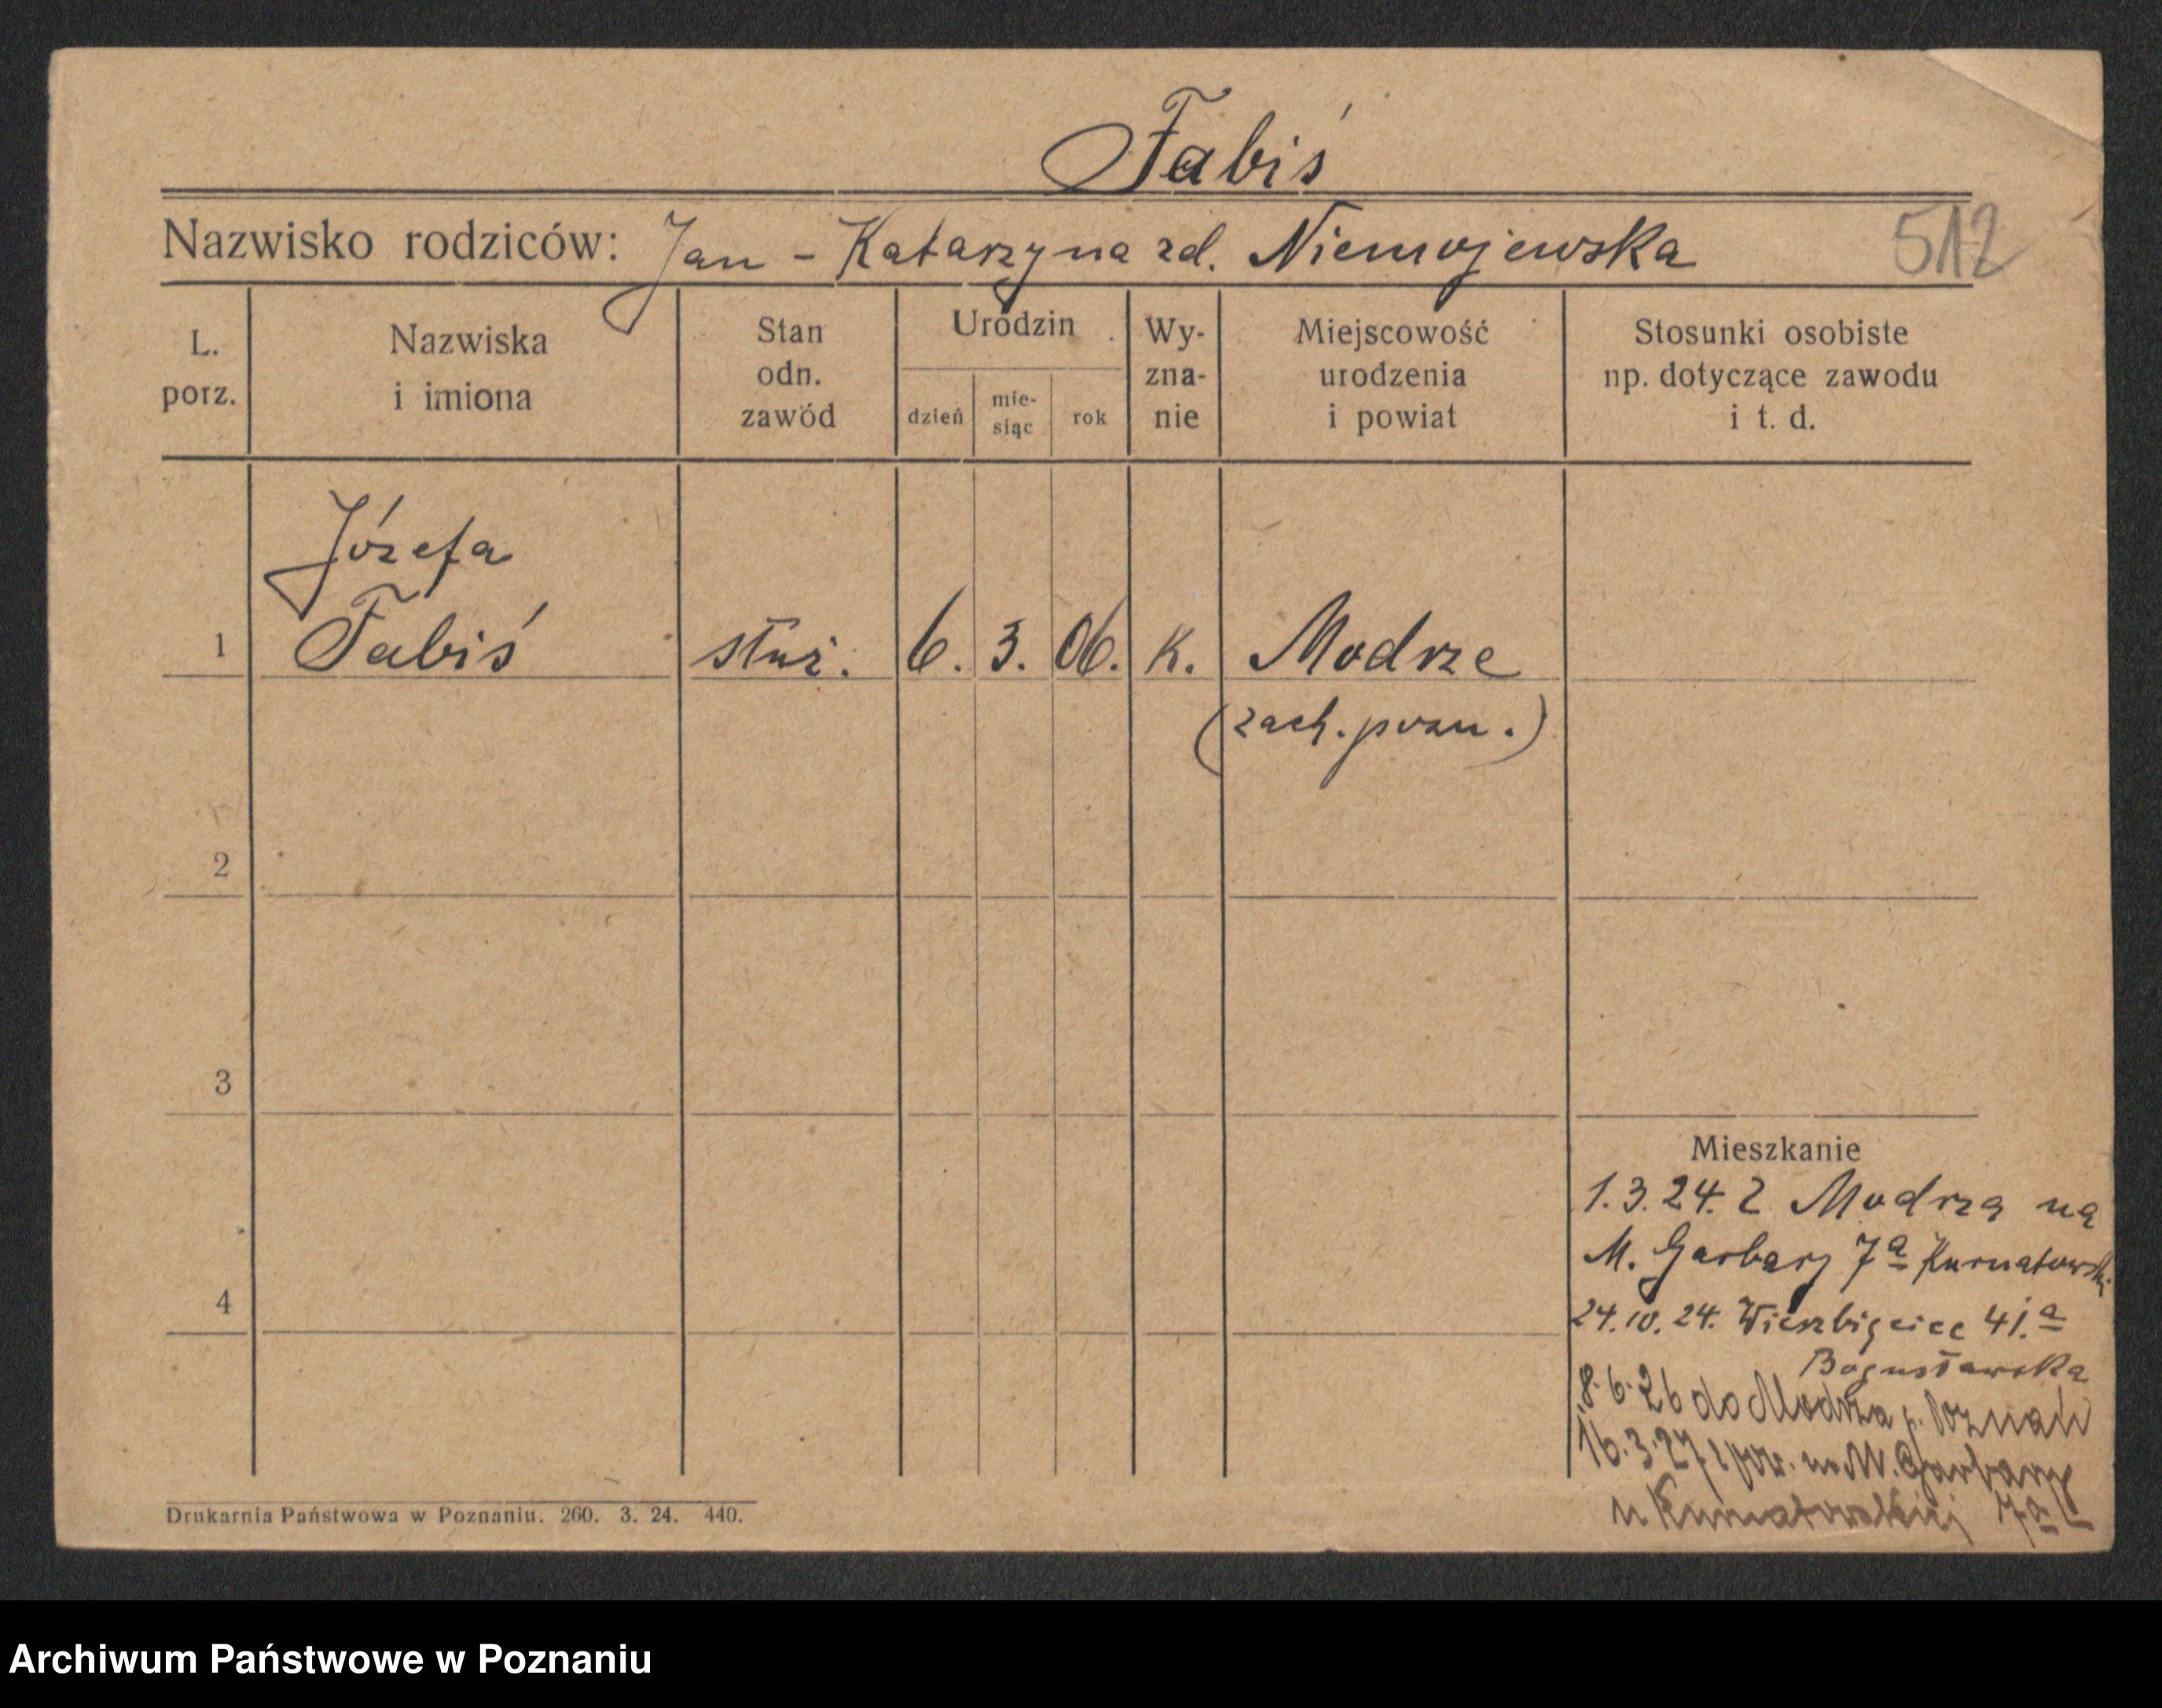 Fabiś
Nazwisko rodziców: Jan - Katarzyna zd. Niemojewska 512
L. porz.
Nazwiska i imiona
Stan odn. zawód
Urodzin
dzień
mie-siąc
rok
Wy-zna-nie
Miejscowość urodzenia i powiat
Stosunki osobiste np. dotyczące zawodu i t. d.
Józefa
1 Fabiś służ. 6. 3. 06. K. Modrze
(zach. pozn.)
2
3
4
Mieszkanie
1.3.24. z Modrza na
M. Garbary 7a Kurnatowski
24.10.24. Wierzbięcice 41.a
Bogusławska
8.6.26 do Modrza p. Poznań
16.3.27 na M. Garbary
u Kurnatowskiej 7a
Drukarnia Państwowa w Poznaniu. 260. 3. 24. 440.
Archiwum Państwowe w Poznaniu